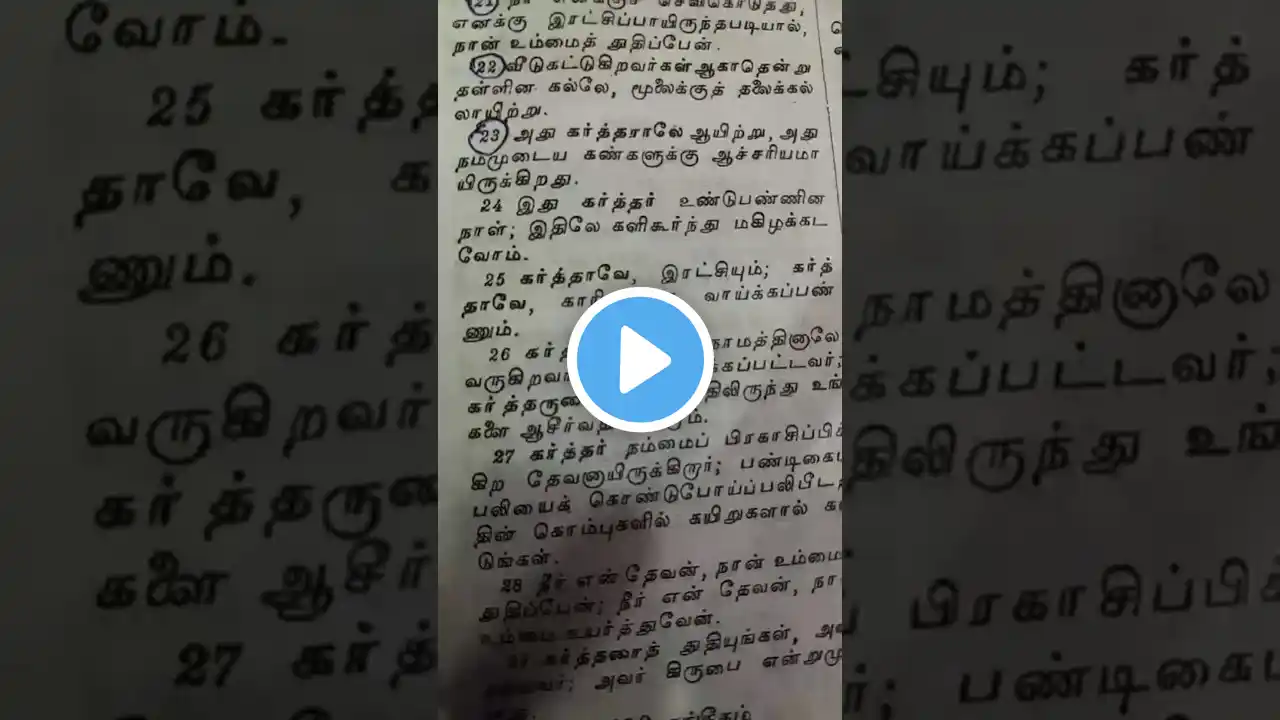 எனக்கு இரட்சிப்பாயிருந்தபடியால்,
நான் உம்மைத் துதிப்பேன்.
22 வீடுகட்டுகிறவர்கள் ஆகாதென்று
தள்ளின கல்லே, மூலைக்குத் தலைக்கல்
லாயிற்று.
23 அது கர்த்தராலே ஆயிற்று, அது
நம்முடைய கண்களுக்கு ஆச்சரியமா
யிருக்கிறது.
24 இது கர்த்தர் உண்டுபண்ணின
நாள்; இதிலே களிகூர்ந்து மகிழக்கட
வோம்.
25 கர்த்தாவே, இரட்சியும்; கர்த்
தாவே, வாய்க்கப்பண்
ணும்.
26 நாமத்தினாலே
க்கப்பட்டவர்;
திலிருந்து உங்
களை
27 கர்த்தர் நம்மைப் பிரகாசிப்பிக்
கிற தேவனாயிருக்கிறார்; பண்டிகைப்
பலியைக் கொண்டுபோய்ப்பலிபீடத்
தின் கொம்புகளில் கயிறுகளால்
டுங்கள்.
28 நீர் என் தேவன், நான் உம்மை
துதிப்பேன்; நீர் என் தேவன்,
உம்மை உயர்த்துவேன்.
கர்த்தரைத் துதியுங்கள்,
அவர் கிருபை என்றுமு